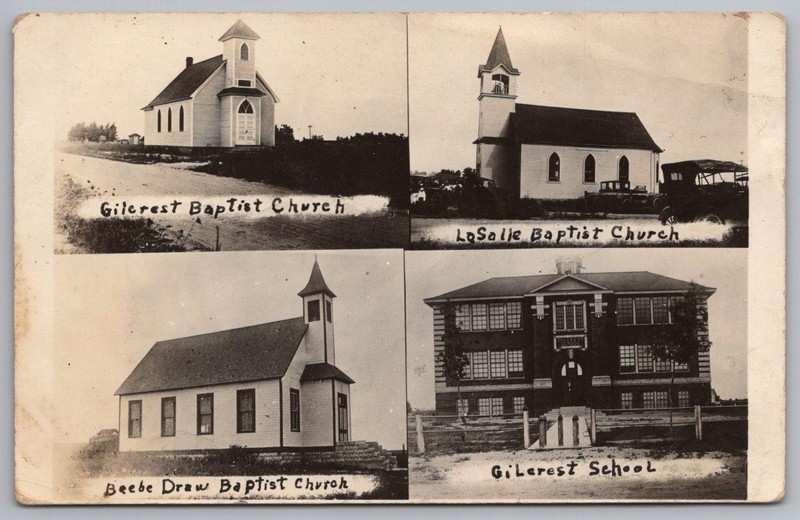 Gilcrest Baptist Church
LaSalle Baptist Church
Beebe Draw Baptist Church
Gilcrest School